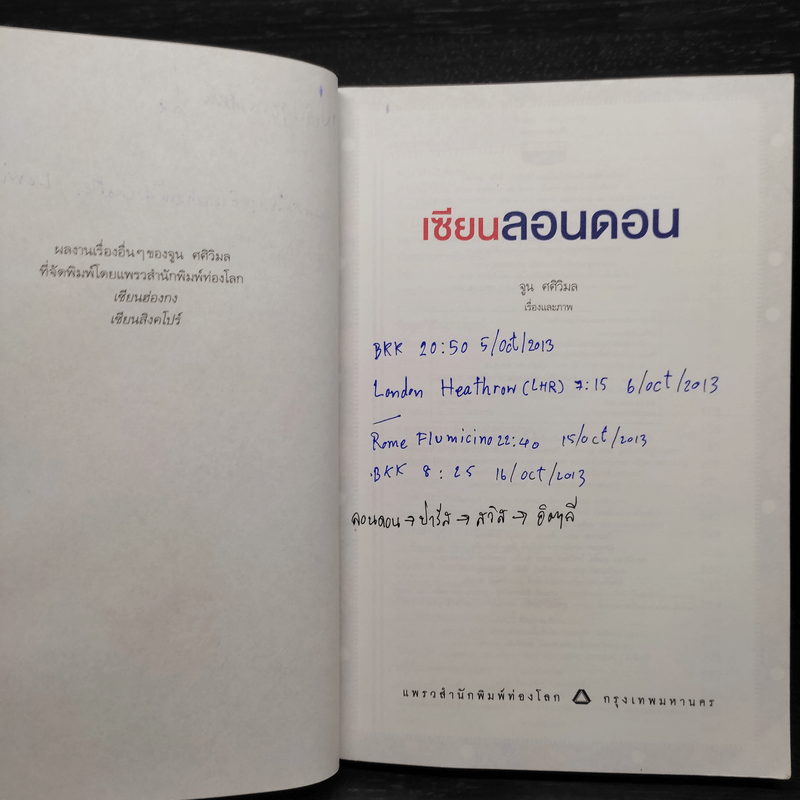 ผลงานเรื่องอื่นๆ ของจูน ศศิวิมล
ที่จัดพิมพ์โดยแพรวสำนักพิมพ์ท่องโลก
เซียนฮ่องกง
เซียนสิงคโปร์
เซียนลอนดอน
จูน ศศิวิมล
เรื่องและภาพ
BKK 20:50 5/Oct/2013
London Heathrow (LHR) 7:15 6/Oct/2013
Rome Flumicino 22:40 15/Oct/2013
BKK 8:25 16/Oct/2013
ลอนดอน → ปารีส → สวิส → อิตาลี
แพรวสำนักพิมพ์ท่องโลก กรุงเทพมหานคร